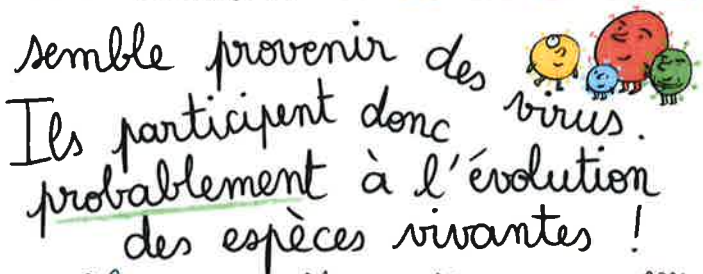 semble provenir des virus.
Ils participent donc
probablement à l'évolution
des espèces vivantes !